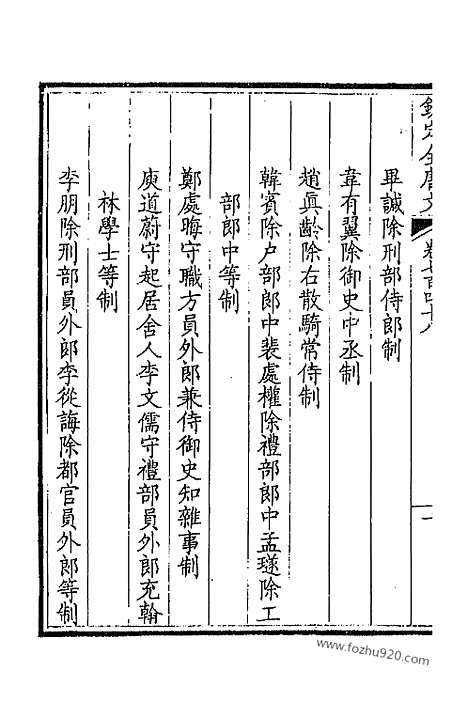 欽定全唐文
卷七百四十八
一
畢諴除刑部侍郎制
韋有翼除御史中丞制
趙眞齡除右散騎常侍制
韓賓除户部郎中裴處權除禮部郎中孟璲除工
部郎中等制
鄭處晦守職方員外郎兼侍御史知雜事制
庾道蔚守起居舍人李文儒守禮部員外郎充翰
林學士等制
李朋除刑部員外郎李從誨除都官員外郎等制
www.fozhu920.com